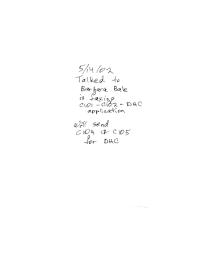 5/14/02
Talked to
Barbara Bale
is faxing
C101 - C102 - DHC
application
will send
C104 & C105
for DHC